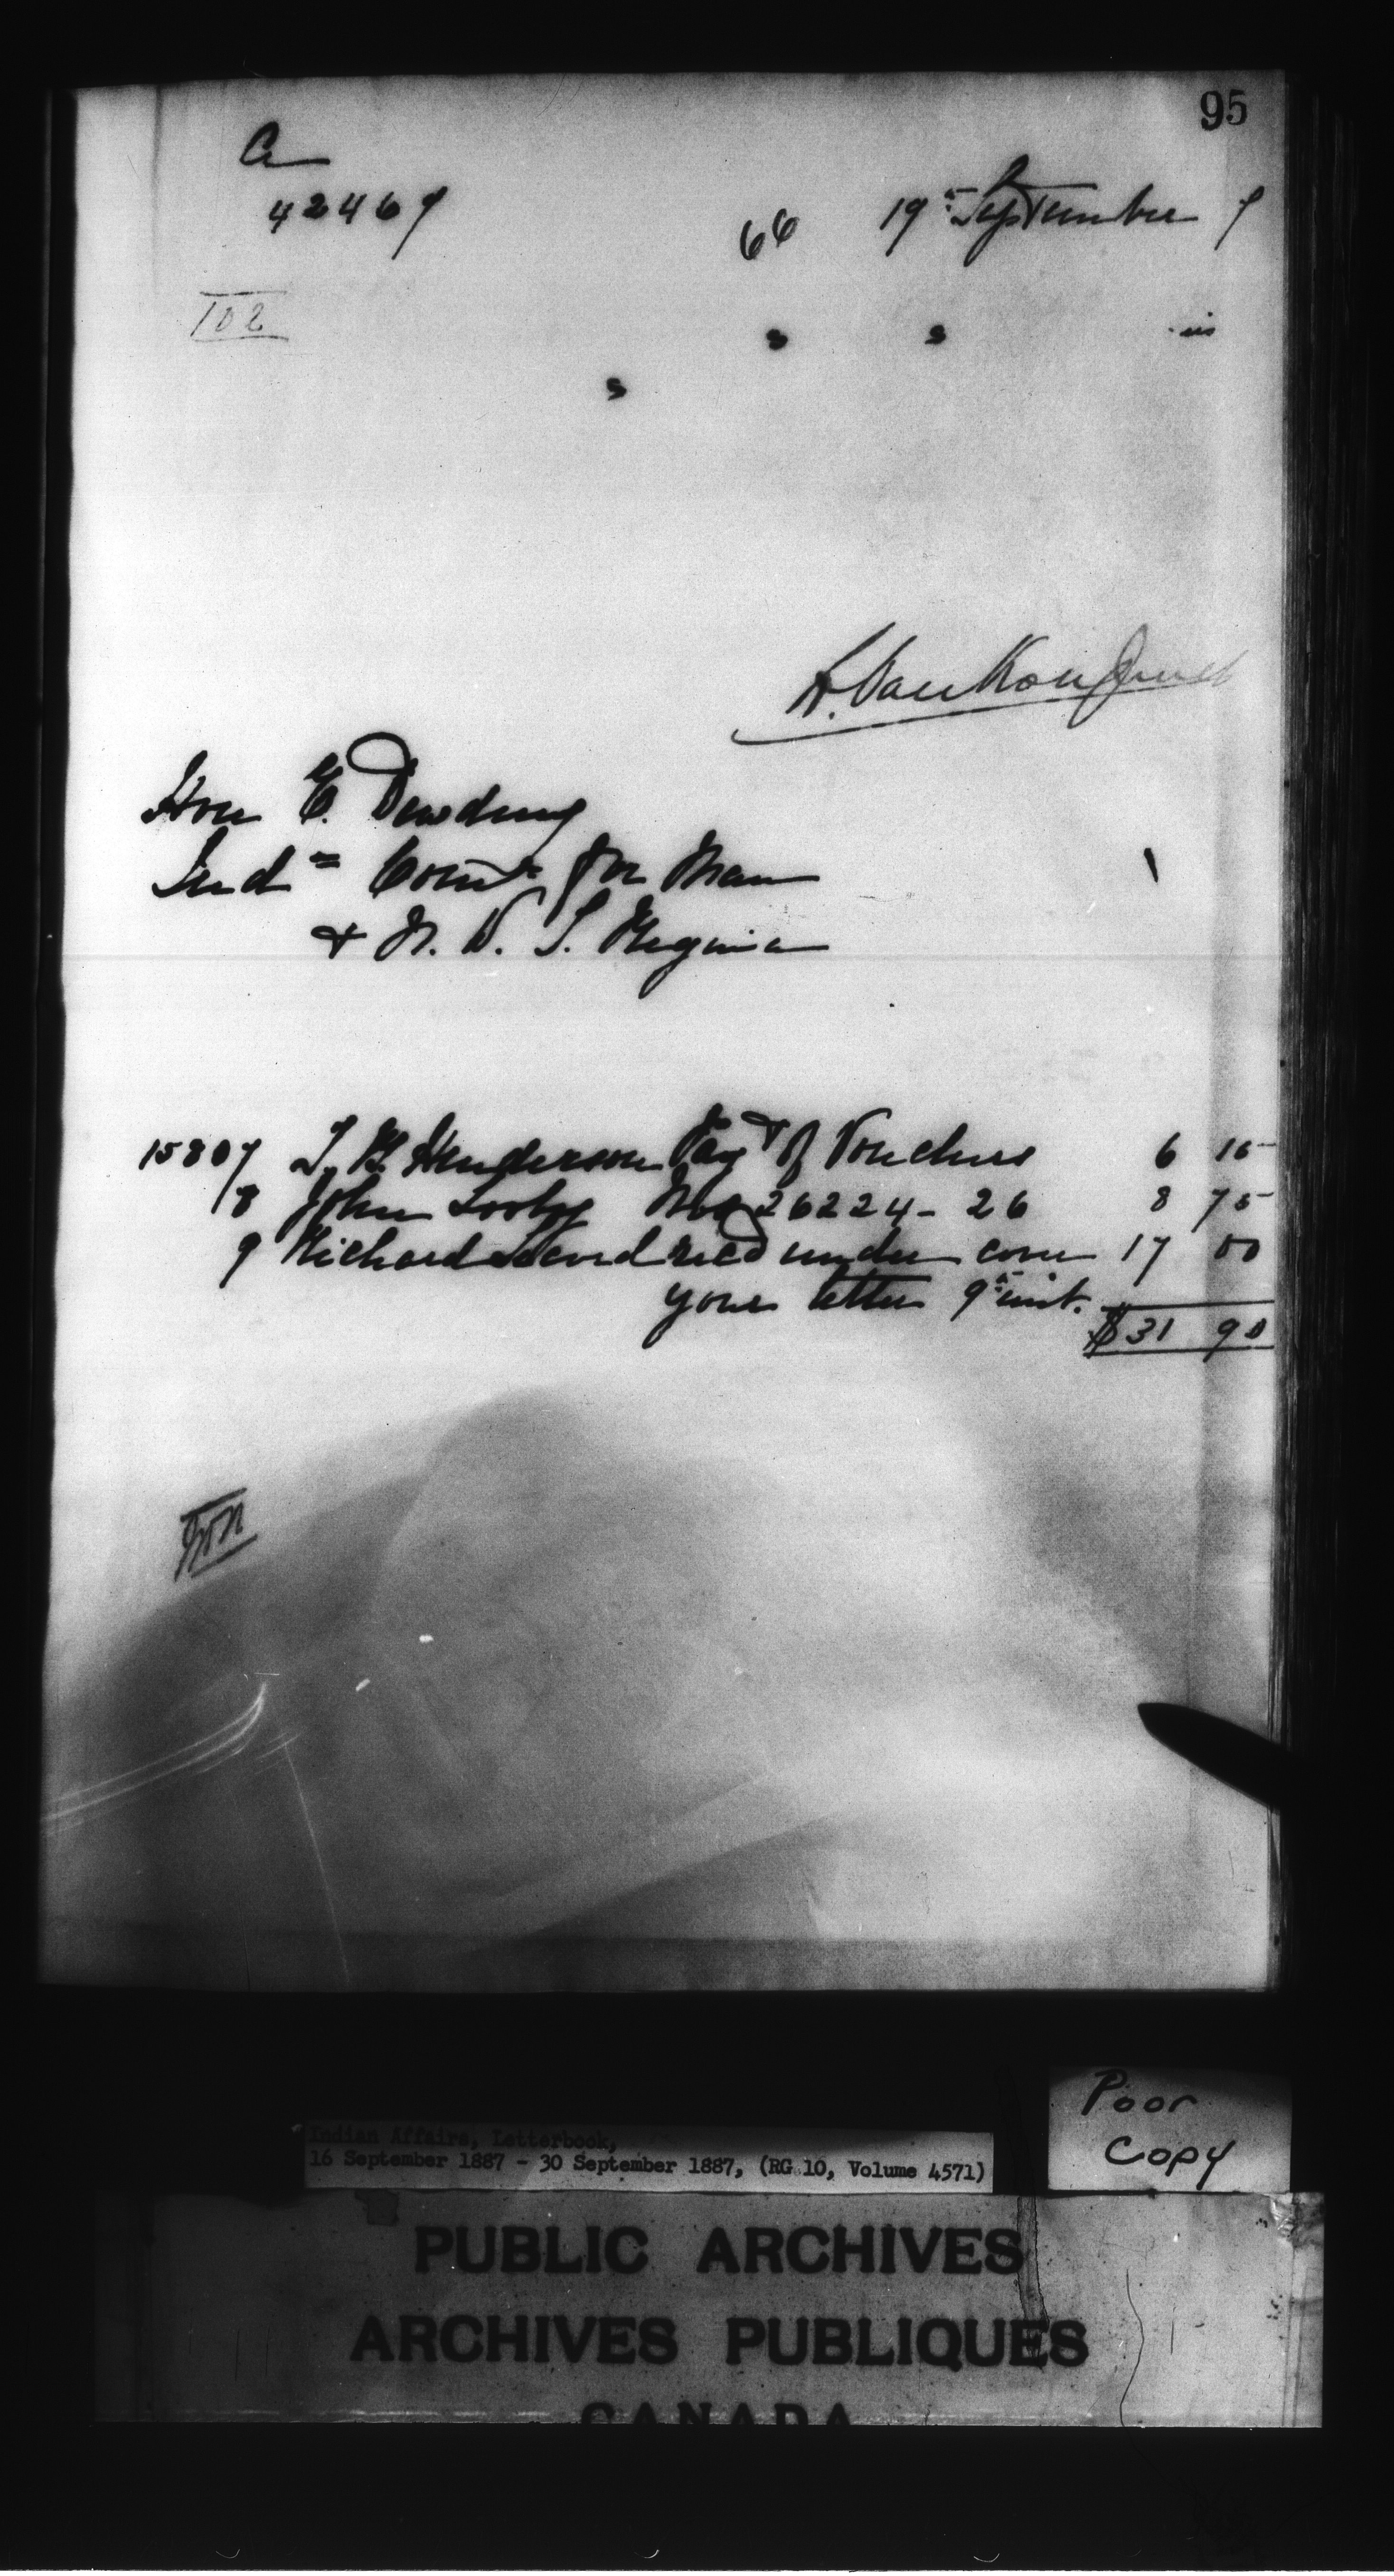 95
a
42467
66 19th September 7
102
s s is
s
L. VanKoughnet
Hon E. Dewdney
Ind = Comr for Man
& N. W. T. Regina
15807 T. H. Henderson Payt of Vouchers 6 15
8 John Nos 26224 - 26 8 75
9 Richard Secord recd under cover 17 00
your letter 9th inst.
$31 90
Indian Affairs, Letterbook,
16 September 1887 - 30 September 1887, (RG 10, Volume 4571)
Poor
Copy
PUBLIC ARCHIVES
ARCHIVES PUBLIQUES
CANADA